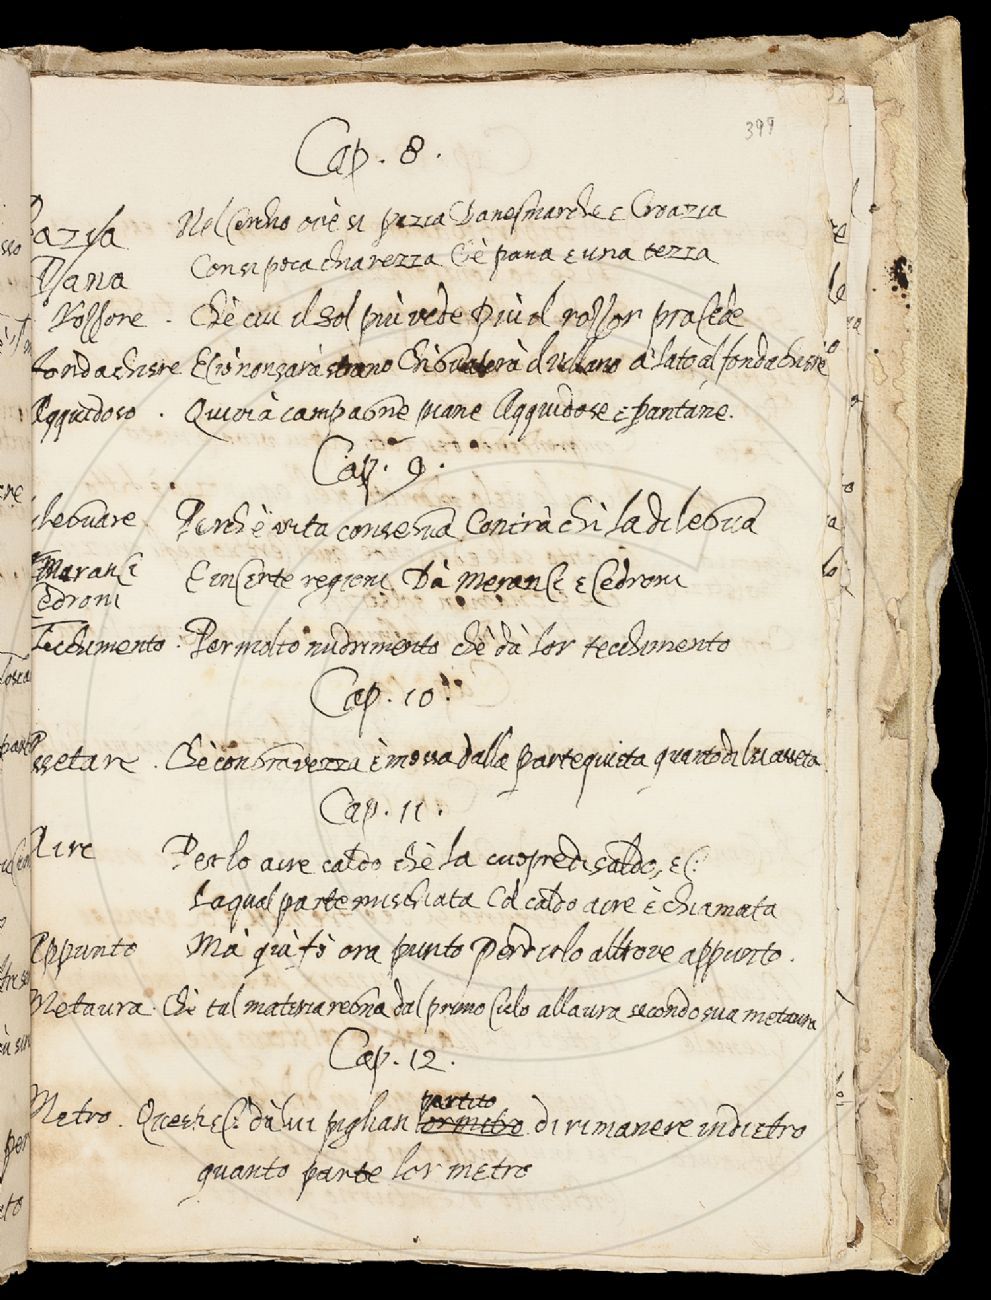 399
Cap. 8.
Pazia Nel Cerchio ov'è si pazia Danesmarche e Croazia
Pana Con si poca chiarezza C'è pana e una tezza
Rossore. Chè cui il Sol più vede Più il rossor prosede
fondachiere E ciò non sarà strano il villano a lato al fondachiere
Aqquidoso. Quivi à campagne piane Aqquidose e pantane.
Cap. 9.
Perchè vita conserva Contrà chi la
Maranci E in certe regioni Dà Meranci e Cedroni
Cedroni
Tecchimento. Per molto nudrimento chè dà lor tecchimento
Cap. 10.
Assetare. Chè con gravezza è mossa dalla parte quieta quanto di lei asseta
Cap. 11.
Aire Per lo aire caldo chè la cuopre di caldo, ec:
La qual parte mischiata Col caldo aire è chiamata
Appunto Mà quà fò ora punto Perdirlo altrove appunto.
Metaura. Chè tal materia regna dal primo Cielo all aura secondo sua metaura
Cap. 12.
partito
Metro. Questi di lui piglian di rimanere indietro
quanto parte lor metro